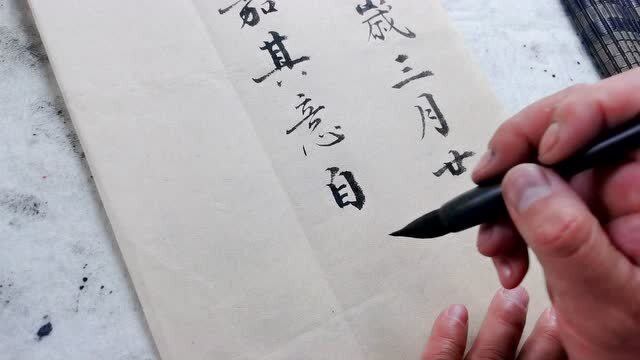 歲三月廿
其意自